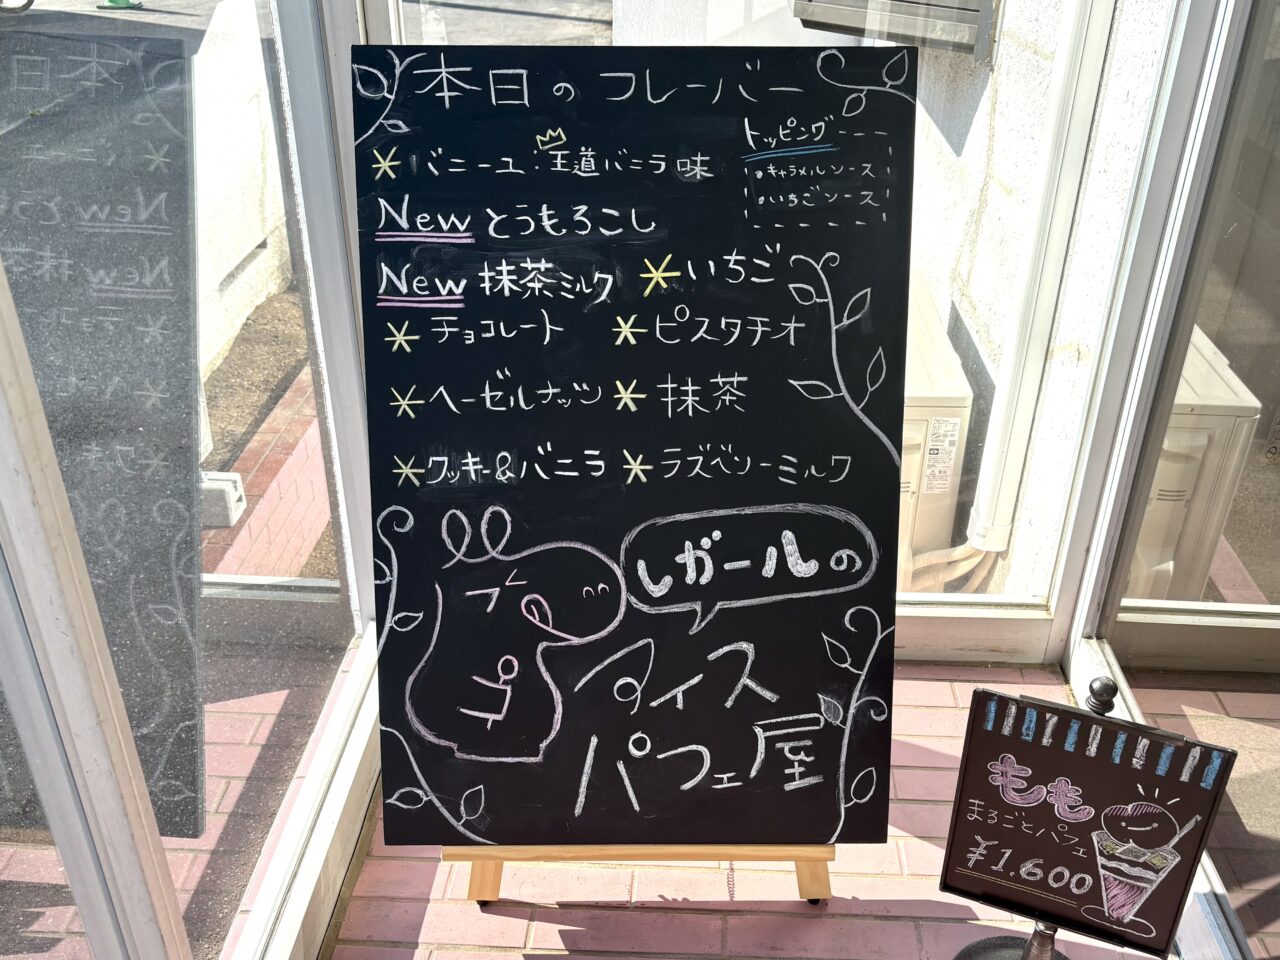 本日のフレーバー
バニーユ:王道バニラ味
トッピング
・キャラメルソース
・いちごソース
New とうもろこし
New 抹茶ミルク
いちご
チョコレート
ピスタチオ
ヘーゼルナッツ
抹茶
クッキー&バニラ
ラズベリーミルク
レガールの
アイス
パフェ屋
もも
まるごとパフェ
¥1,600